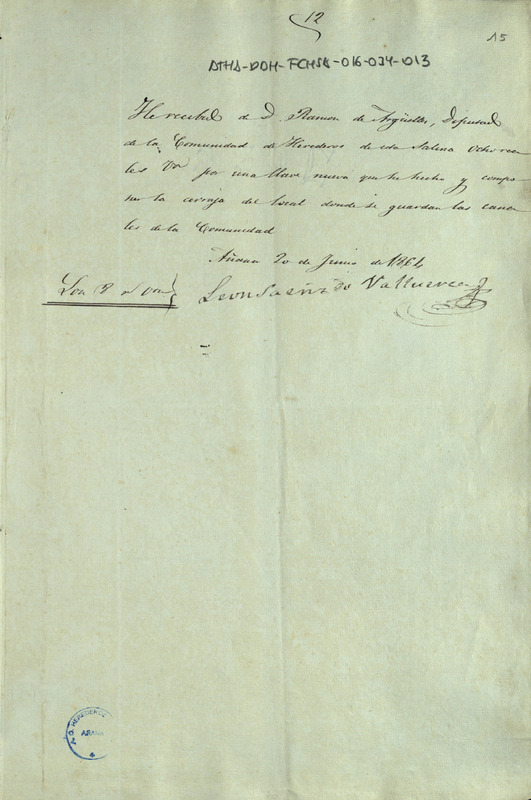 12
15
ATHA-DOH-FCHSA-016-034-013
He recibido de D. Ramon de Argüelles, Diputado
de la Comunidad de Herederos de esta Salina ocho rea
les Vn por una llave nueva que he hecho y compo
ner la cerraja del local donde se guardan las cana
les de la Comunidad
Añana 20 de Junio de 1864
Son 8 rs vn
Leon Saenz de Valluerca
HEREDEROS
AÑANA